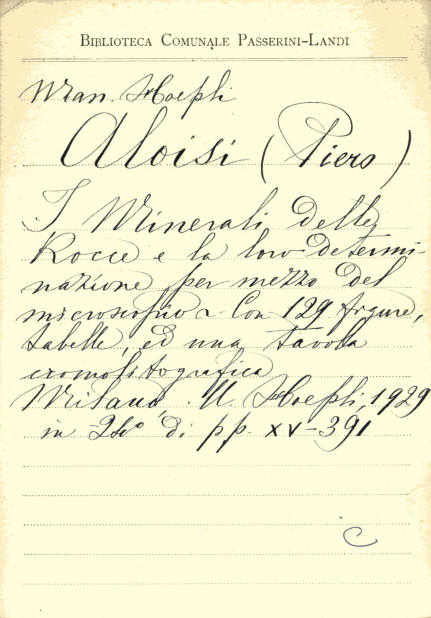 BIBLIOTECA COMUNALE PASSERINI-LANDI
Man. Hoepli
Aloisi (Piero)
I Minerali delle
Rocce e la loro determi-
nazione per mezzo del
microscopio - Con 129 figure,
tabelle, ed una tavola
cromolitografica
Milano, U. Hoepli, 1929
in 24° di pp. XV-391
C